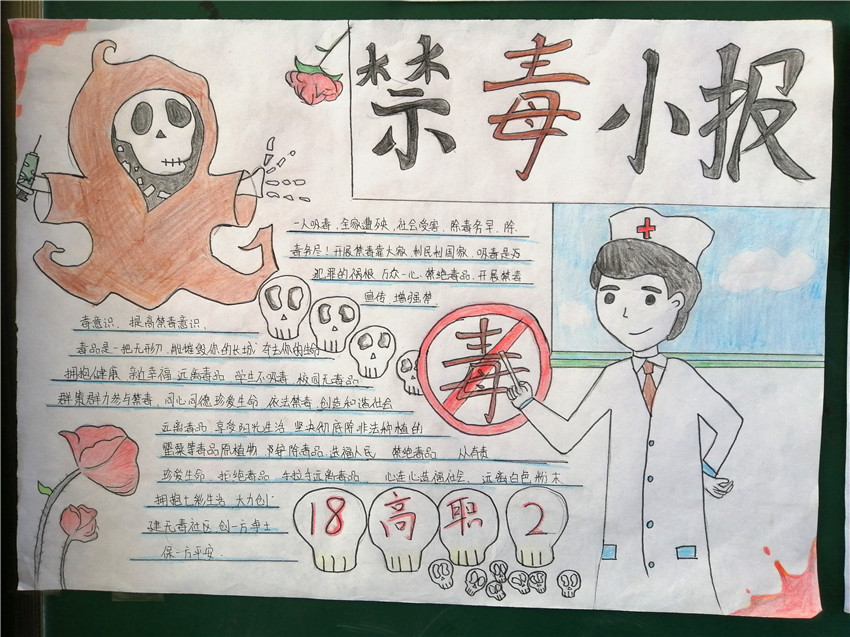 禁毒小报
一人吸毒,全家遭殃,社会受害,除毒务早,除
毒务尽!开展禁毒靠大家,利民利国家,吸毒是万
犯罪的祸根 万众一心,禁绝毒品,开展禁毒
宣传,增强禁
毒意识,提高禁毒意识,
毒品是一把无形刀,能摧毁你的长城 夺去你的生命
毒
拥抱健康 亲近幸福 远离毒品 学生不吸毒 校园无毒品
群策群力参与禁毒,同心同德珍爱生命 依法禁毒 创造和谐社会
远离毒品 享受阳光生活 坚决彻底废除非法种植的
罂粟等毒品原植物 除毒品,造福人民 禁绝毒品 从
珍爱生命 拒绝毒品 远离毒品 心连心造福社会 远离白色粉末
拥抱七彩生活 大力创
建无毒社区 创一方净土
保一方平安.
18高职2